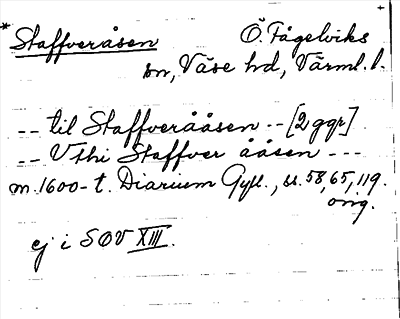 * Staffveråsen Ö. Fågelviks
sn, Väse hd, Värml. l.
-- til Staffverååsen -- [2 ggr].
-- Vthi Staffver ååsen ---
m. 1600-t. Diarium Gyll., s. 58, 65, 119.
orig.
ej i SOV XIII.